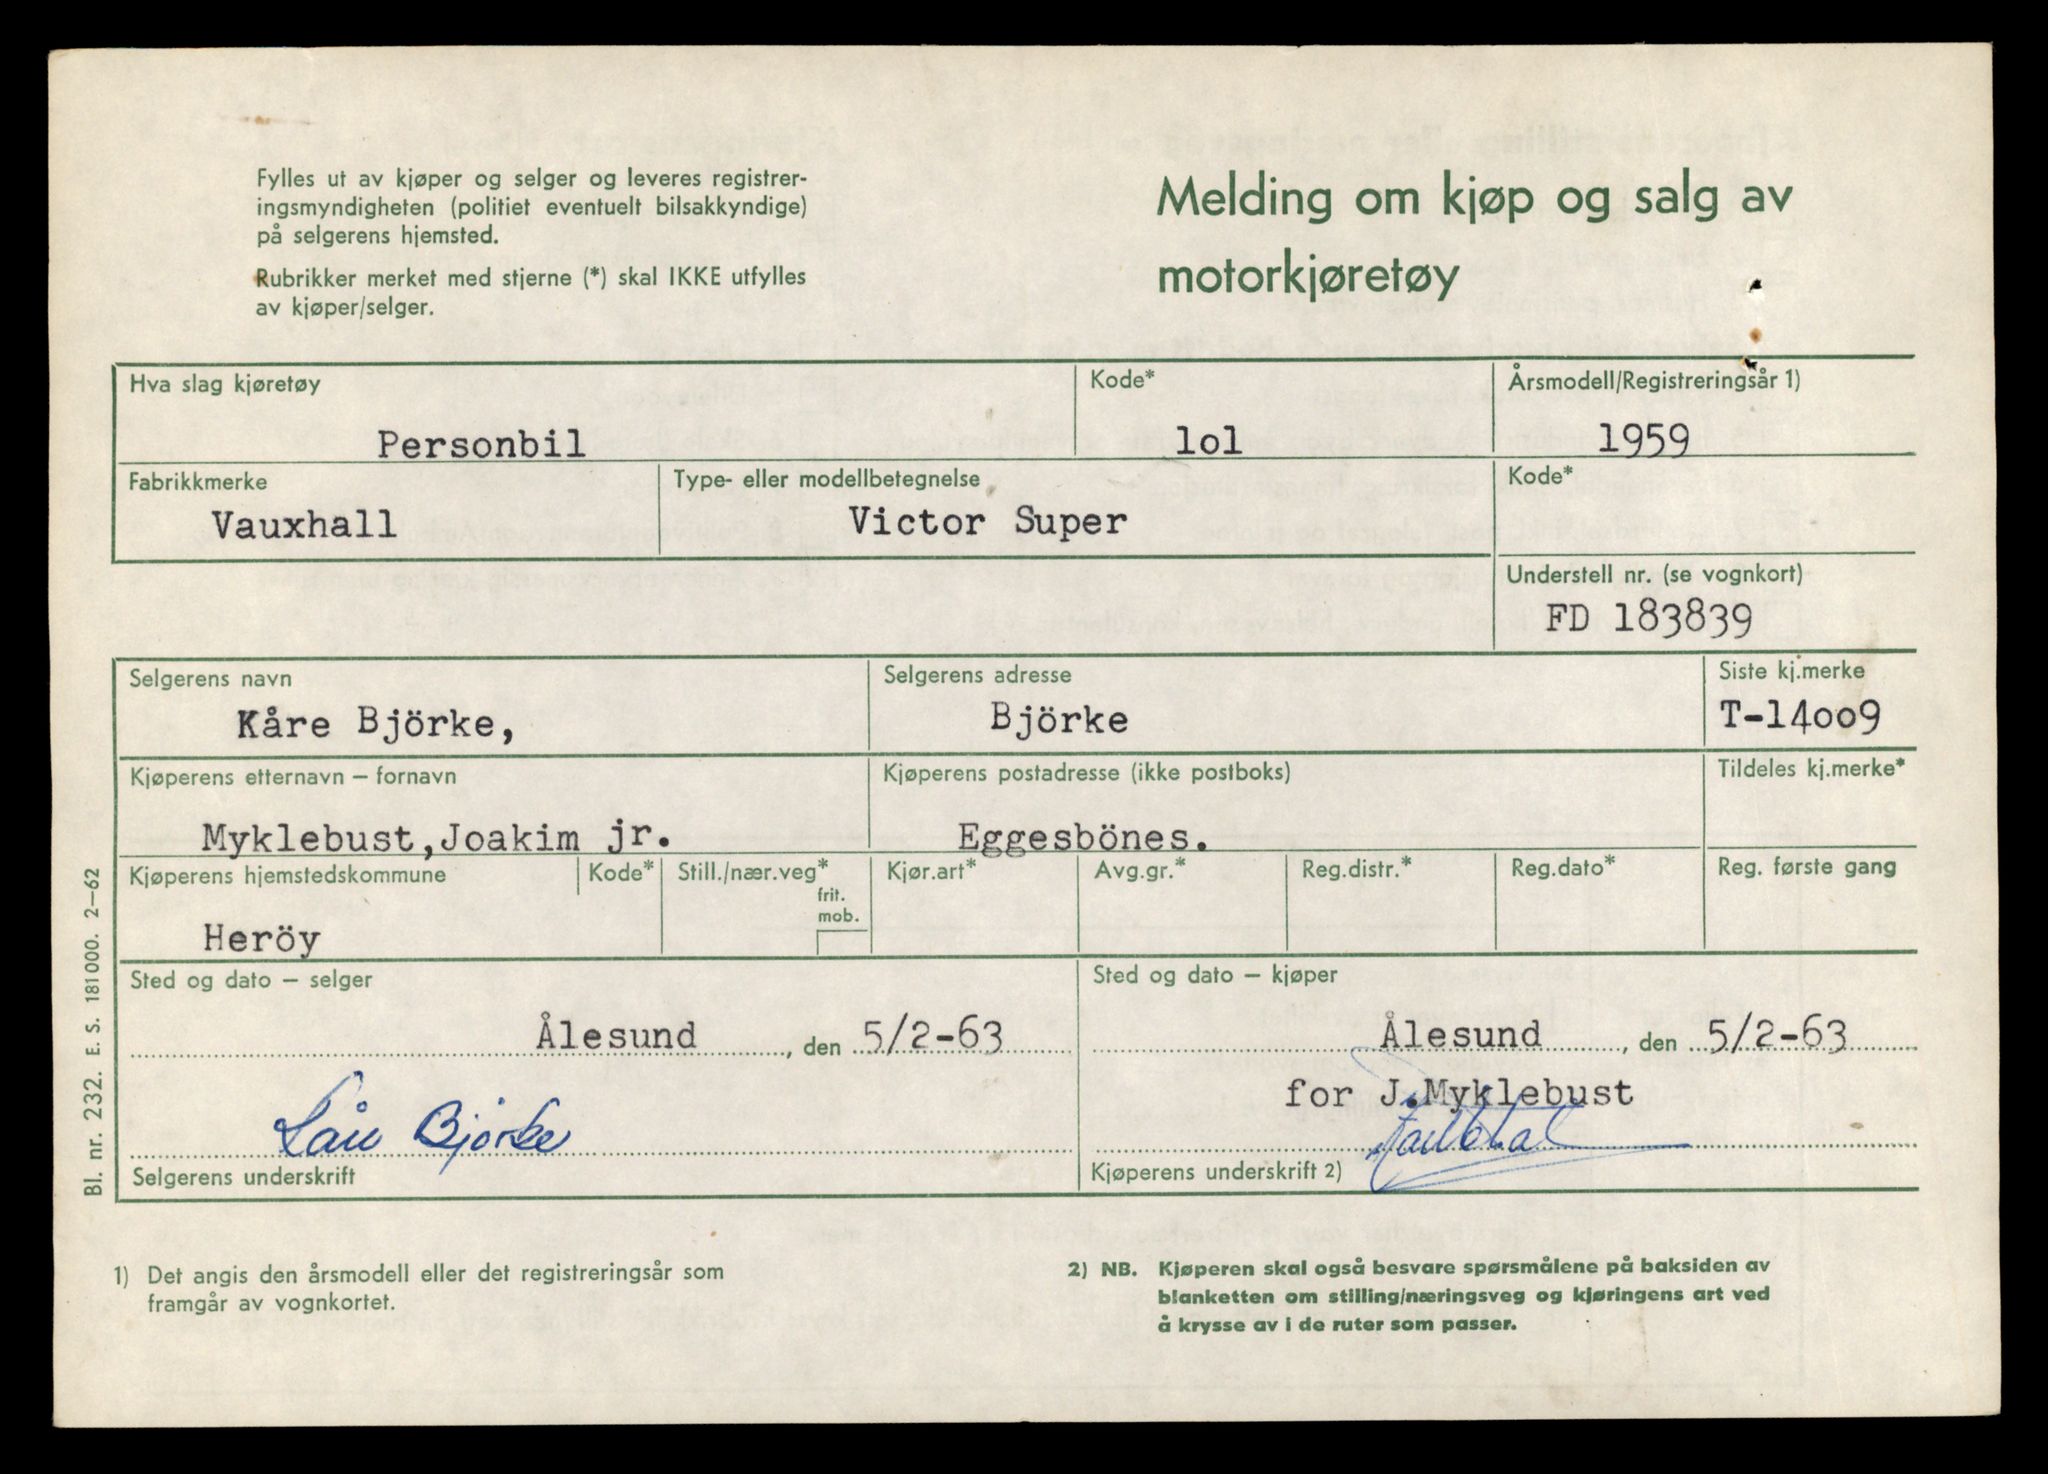 Fylles ut av kjøper og selger og leveres registrer-
ingsmyndigheten (politiet eventuelt bilsakkyndige)
på selgerens hjemsted.
Rubrikker merket med stjerne (*) skal IKKE utfylles
av kjøper/selger.
Melding om kjøp og salg av
motorkjøretøy
Hva slag kjøretøy
Kode*
Årsmodell/Registreringsår 1)
Personbil
lol
1959
Fabrikkmerke
Type- eller modellbetegnelse
Kode*
Vauxhall
Victor Super
Understell nr. (se vognkort)
FD 183839
Selgerens navn
Selgerens adresse
Siste kj.merke
Kåre Björke,
Björke
T-14009
Kjøperens etternavn – fornavn
Kjøperens postadresse (ikke postboks)
Tildeles kj.merke*
Myklebust,Joakim jr.
Eggesbönes.
Kjøperens hjemstedskommune
Kode*
Still./nær.veg*
frit.
mob.
Kjør.art*
Avg.gr.*
Reg.distr.*
Reg.dato*
Reg. første gang
Heröy
Sted og dato – selger
Sted og dato – kjøper
Ålesund, den 5/2-63
Ålesund, den 5/2-63
for J.Myklebust
Kåre Bjørke
Selgerens underskrift
Kjøperens underskrift 2)
Bl. nr. 232. E. S. 181000. 2–62
1) Det angis den årsmodell eller det registreringsår som
framgår av vognkortet.
2) NB. Kjøperen skal også besvare spørsmålene på baksiden av
blanketten om stilling/næringsveg og kjøringens art ved
å krysse av i de ruter som passer.